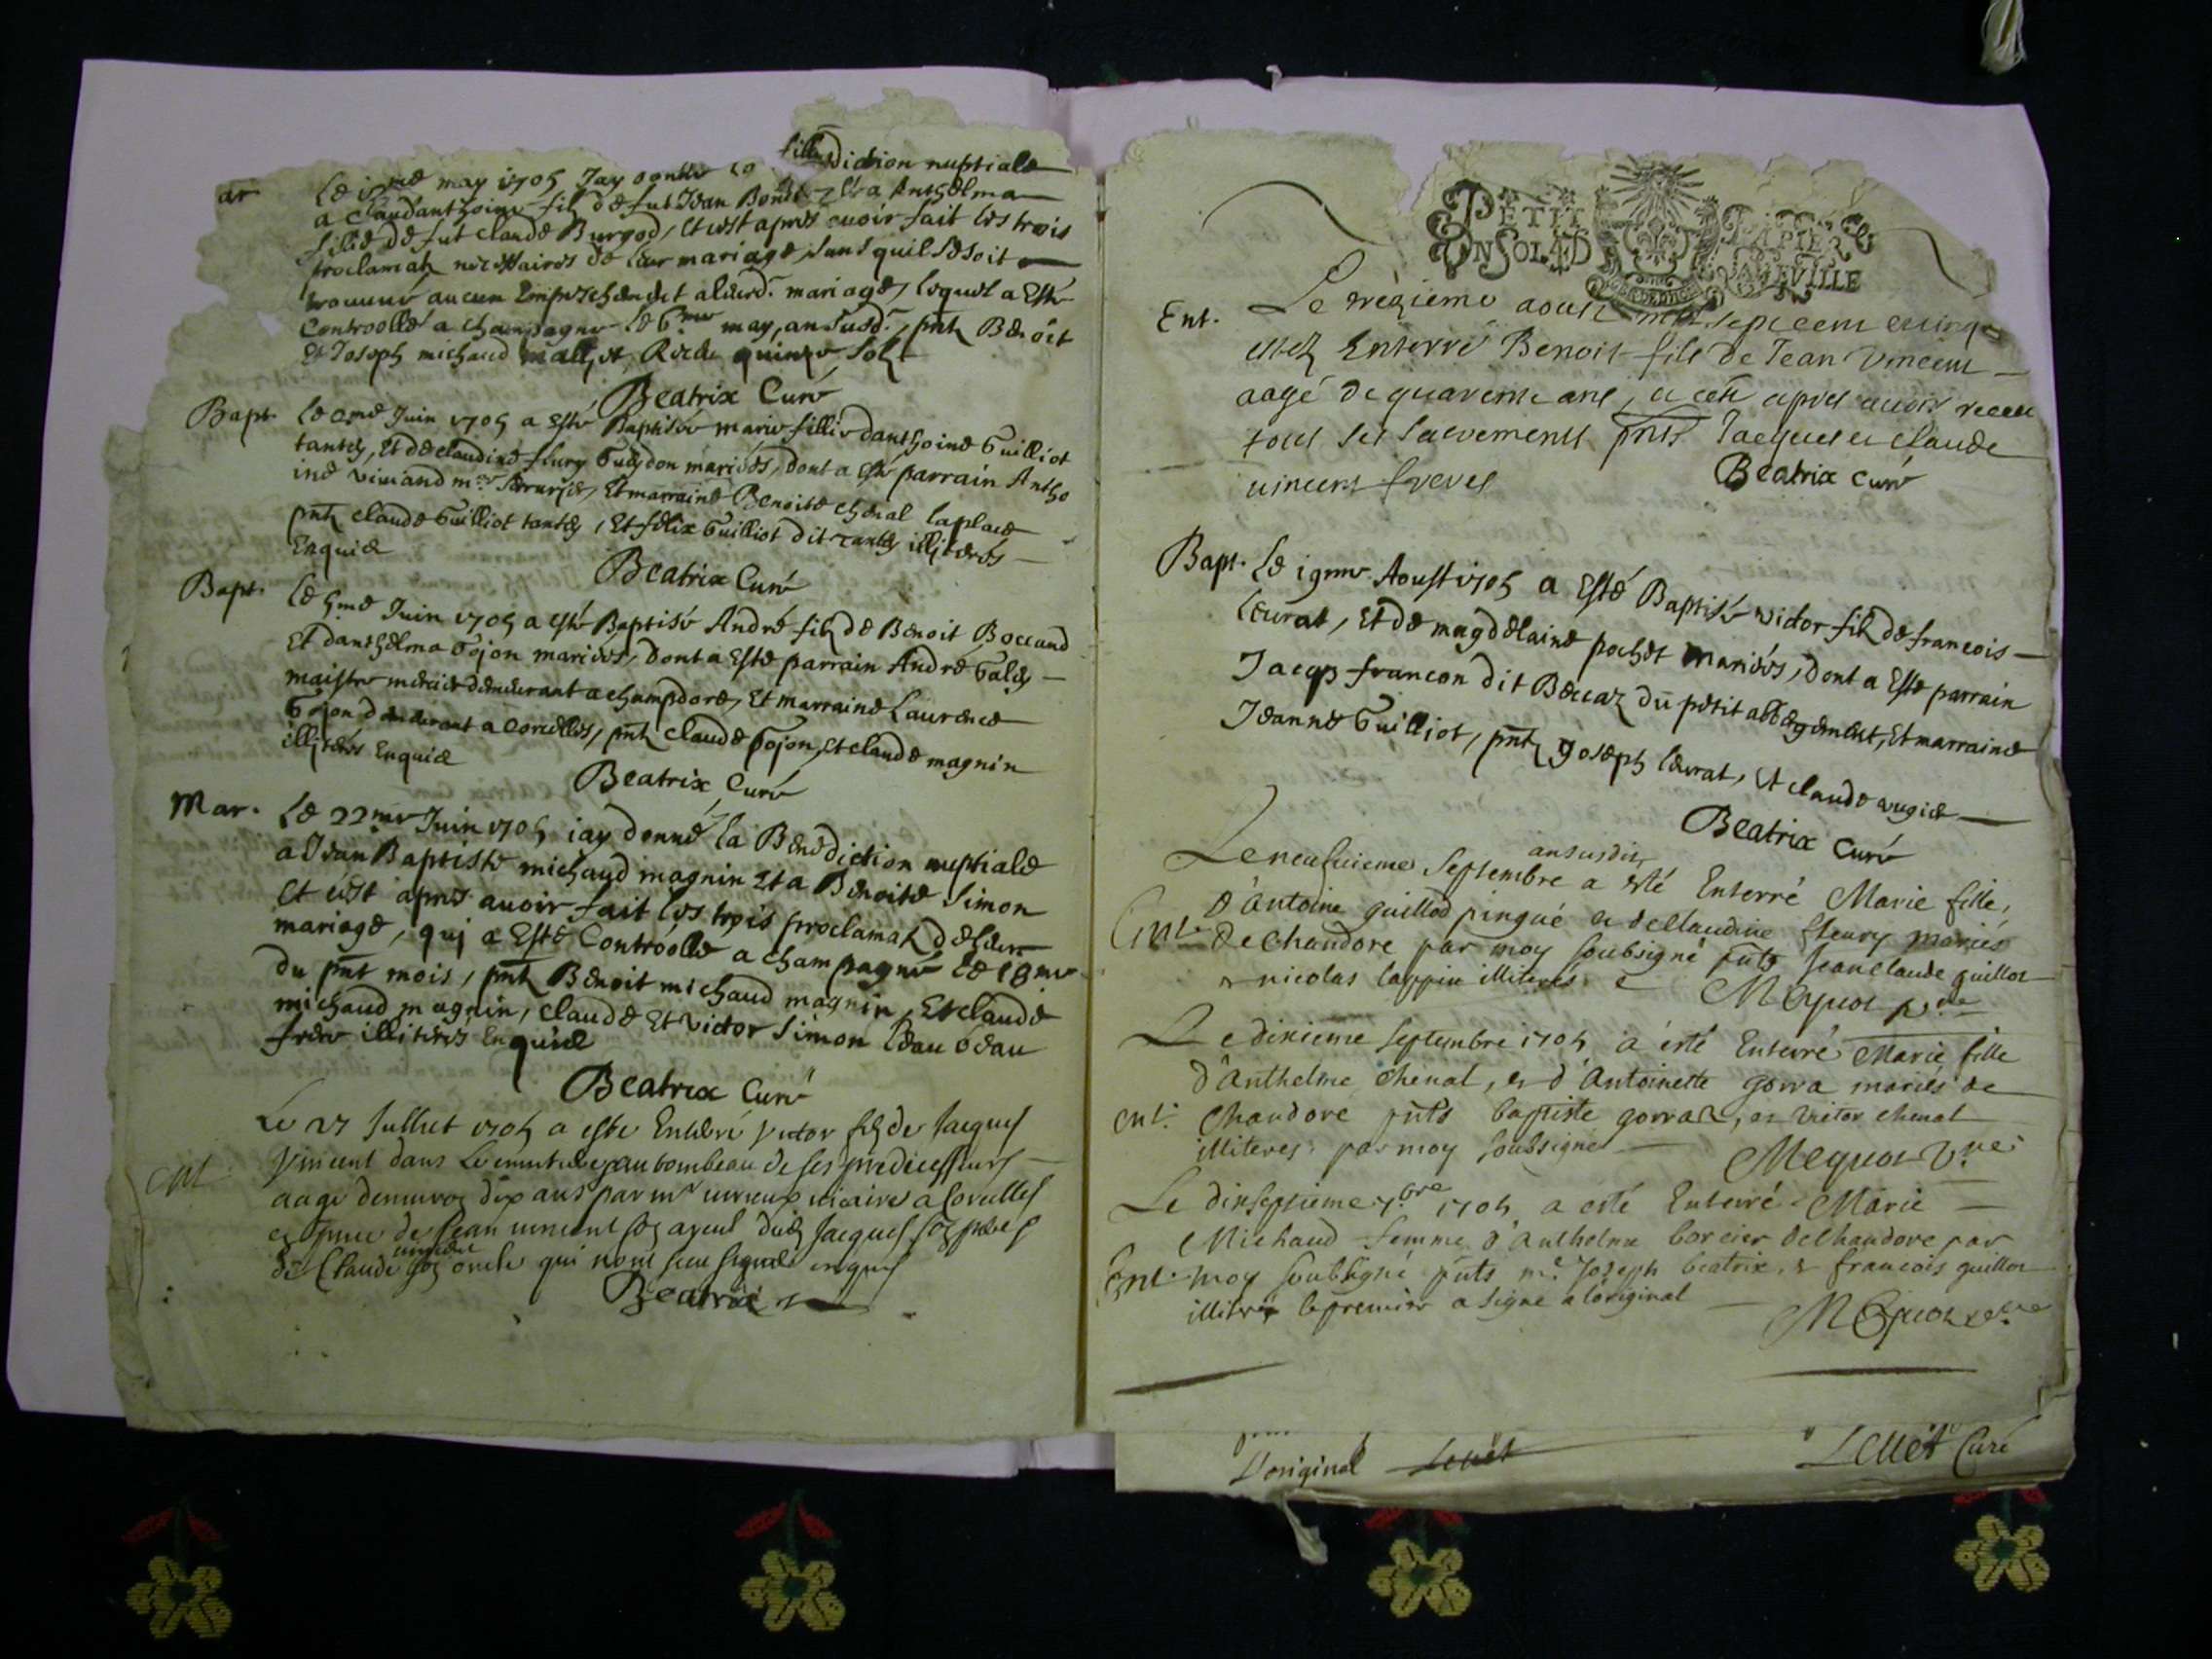 ar
Le may 1705 Jay donné la Benediction nuptiale
a Claudanthoine filz de fut Jean Bond Et a Anthelma
fille
fillie de fut claude Burgod, Et c'est apres avoir fait les trois
proclamatz necessaires de leur mariage, sans quil se soit
trouvué aucun Empeschement aleurd. mariage, lequel a Esté
Controollé a champagne le 6.me may, an susd., pntz Benoit
Et Joseph michaud quinze solz
Beatrix Curé
Bapt. Le 2me Juin 1705 a esté Baptisée marie fillie danthoine Guilliot
tantey, Et de claudine fleury Guygdon mariées, dont a esté parrain Antho
ine viviand m.re Serrurier, Et marraine Benoite cheval laplace
pntz claude Guilliot tantey, Et felix Guilliot dit tantey illiterés
Enquis
Beatrix Curé
Bapt. Le 5me Juin 1705 a esté Baptisé André filz de Benoit Boccand
Et danthelma Gojon mariées, dont a Esté parrain André Galey
maistre mercier demeurant a champdore, Et marraine Laurence
Gojon demeurant a corcelles, pntz claude Gojon, et claude magnin
illiterés Enquis
Beatrix Curé
Mar. Le 22me Juin 1705 iay donné la Benediction nuptiale
a Jean Baptiste michaud magnin Et a Benoite Simon
Et c'est apres avoir fait les trois proclamatz de leur
mariage, qui a Esté Controollé a champagne le 18me
du pnt mois, pntz Benoit michaud magnin, Et claude
michaud magnin, claude Et victor Simon
frere illiterés Enquis
Beatrix Curé
Ent. Le 27 Juillet 1705 a esté Enterré victor filz de Jacques
Vincent dans Le cimetiere, au tombeau de ses predicesseurs
aagé denviron dix ans par mr vicaire a Corcelles
en pnce de Jean vincent son ayeul dud Jacques son pere
vincent
de Claude son oncle qui nont sceu signer enquis
Beatrix
PETIT PAPIER
UN SOL LA FEUILLE
Ent. Le trezieme aoust mil sept cent et cinq
estez Enterré Benoit fils de Jean Vincent
aagé de quarente ans, et cest apres avoir receu
tous ses sacrements pnts Jacques et claude
vincent freres
Beatrix curé
Bapt. Le 19me Aoust 1705 a Esté Baptisé victor filz de francois
Leurat, Et de magdelaine pochet mariées, dont a Esté parrain
Jacqs francon dit Beccaz du petit abbergement, Et marraine
Jeanne Guilliot, pntz Joseph leurat, Et claude
Beatrix Curé
an susdit
Le neufvieme Septembre a esté Enterré Marie fille,
d'Antoine guillod pingué et de Claudine fleury mariés
Ent. De Chandore par moy soubsigné pnts Jean claude guillot
& nicolas lappin illiterés
Ent. Le dixieme septembre 1705 a ésté Enterré Marie fille
d'Anthelme chenal, et d'Antoinette gorra mariés de
Chandore pnts baptiste gorraz, et victor chenal
illiteres: par moy soubsigné
Mequoz
Ent. Le dixseptieme 7.bre 1705 a esté Enterré Marie
Michaud femme d'Anthelme borcier de Chandore par
moy soubsigné pnts mr. Joseph beatrix, & francois guillot
illiteré le premier a signé a loriginal
L'original Leuet
Leuet Curé